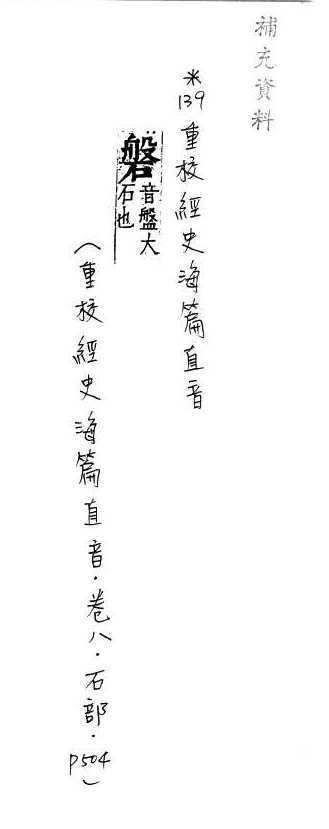 補充資料
*139重校經史海篇直音
磐音盤大
石也
(重校經史海篇直音·卷八·石部·P504)